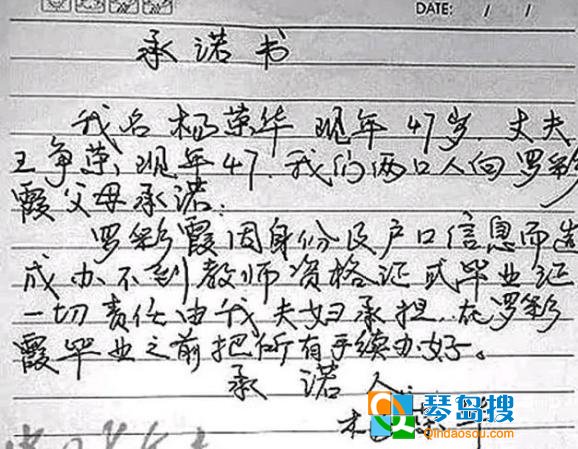 DATE: / /
承诺书
我名杨荣华 现年47岁. 丈夫
王争荣, 现年47. 我们两口人向罗彩
霞父母承诺:
罗彩霞因身份及户口信息而造
成办不到教师资格证或毕业证
一切责任由我夫妇承担. 在罗彩
霞毕业之前把所有手续办好。
承诺人:
杨荣华
琴岛搜
Qindaosou.com